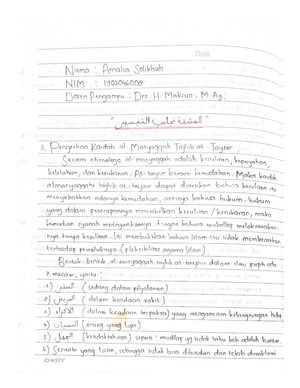 Date
Nama : Amalia Solikhah
NIM : 1902046009
Dosen Pengampu : Drs. H. Maksun, M. Ag.
"المشقة تجلب التيسير"
A. Pengertian Kaidah al-Masyaqqah Tajlib at-Taysir.
Secara etimologi al-masyaqqah adalah kesulitan, kepayahan,
kelelahan, dan kesukaran, At-taysir berarti kemudahan. Maka kaidah
almasyaqqatu tajlib at-taysir dapat diartikan bahwa kesulitan itu
menyebabkan adanya kemudahan, artinya bahwa hukum-hukum
yang dalam penerapannya menimbulkan kesulitan / kesukaran, maka
kemudian syariah meringankannya hingga bahwa mukallaf melaksanakan-
nya tanpa kesulitan. Ini membuktikan bahwa Islam itu tidak memberatkan
terhadap pemeluknya (fleksibilitas agama Islam)
Bentuk-bentuk al-masyaqqah tajlib at-taysir dalam ilmu fiqih ada
7 macam, yaitu :
1.) السفر (sedang dalam perjalanan)
2.) المرض (dalam keadaan sakit)
3.) الاكراه (dalam keadaan terpaksa) yang mengancam kelangsungan hidup
4) النسيان (orang yang lupa)
5) الجهل (ketidaktahuan) seperti : mudlaq yg tidak tahu bab adalah haram.
6) Sesuatu yang lazim, sehingga tidak bisa dihindari dan telah dimaklumi